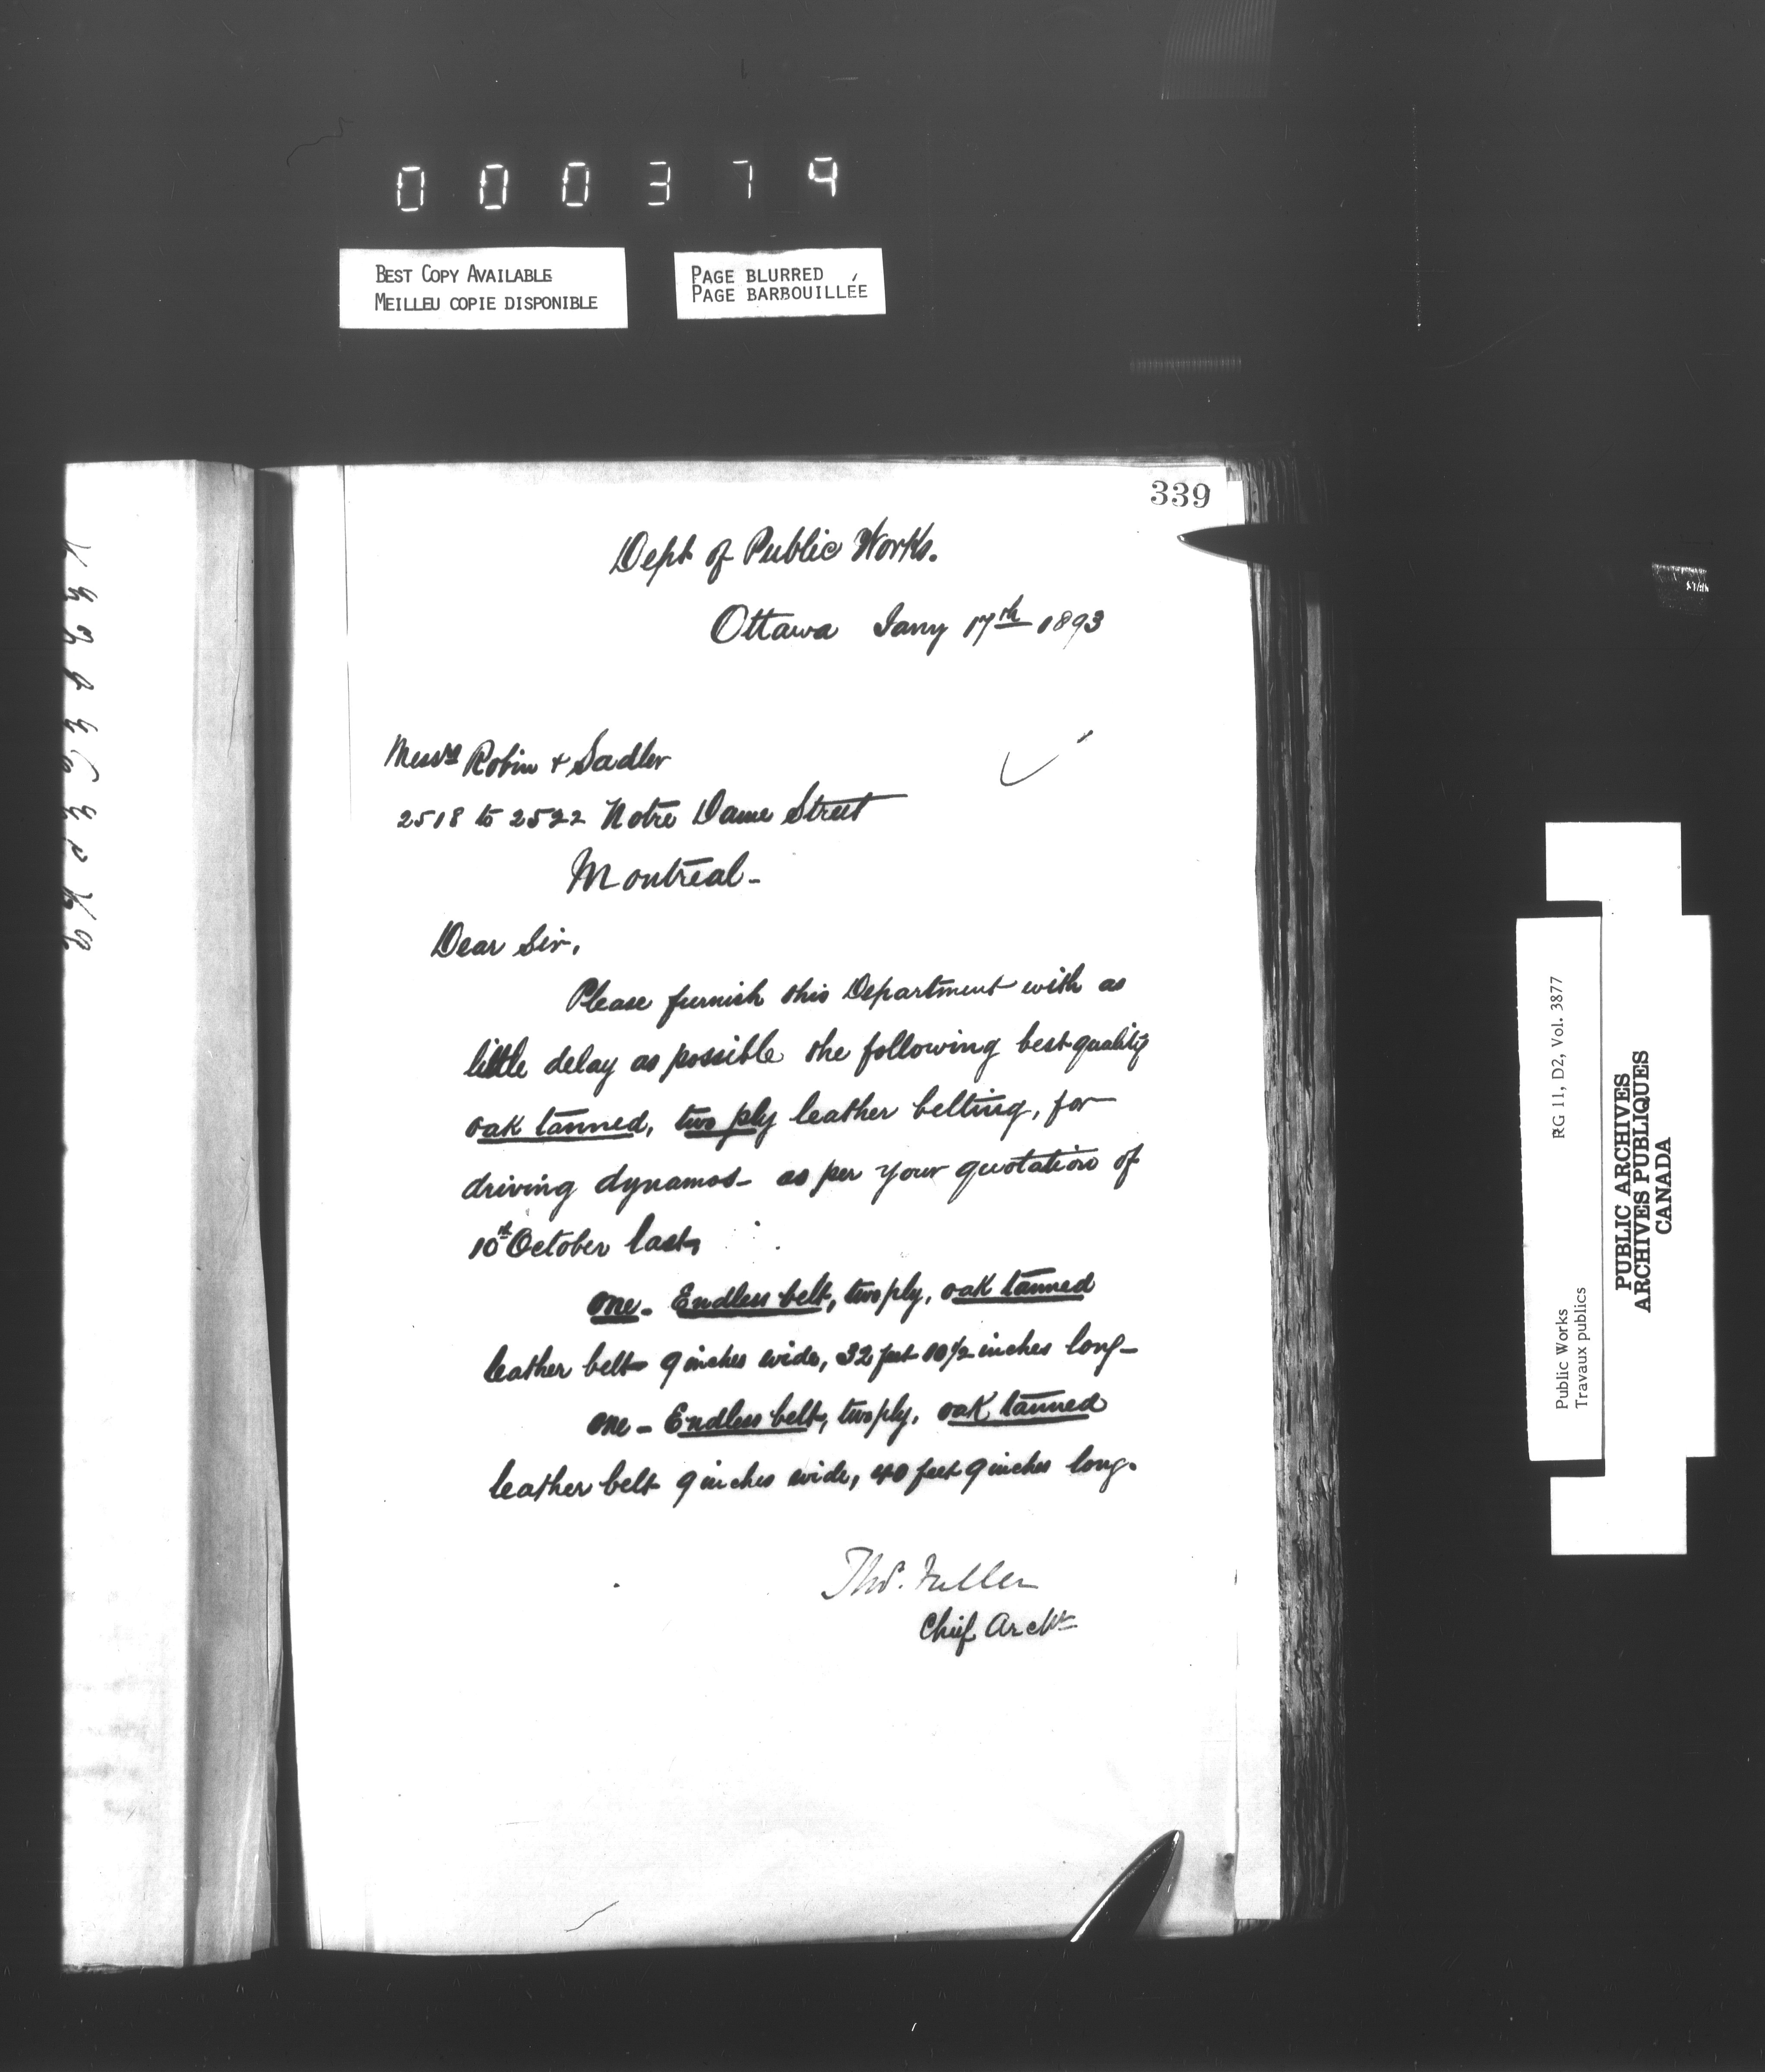 000379
BEST COPY AVAILABLE
MEILLEU COPIE DISPONIBLE
PAGE BLURRED
PAGE BARBOUILLÉE
339
Dept of Public Works.
Ottawa Jany 17th 1893
Messrs Robin & Sadler
2518 to 2522 Notre Dame Street
Montreal -
Dear Sir,
Please furnish this Department with as
little delay as possible the following best quality
oak tanned, two ply leather belting, for
driving dynamos - as per your quotation of
10th October last,
one - Endless belt, two ply, oak tanned
leather belt 9 inches wide, 32 feet 10 1/2 inches long -
one - Endless belt, two ply, oak tanned
leather belt 9 inches wide, 40 feet 9 inches long.
Thos. Fuller
Chief Archt
RG 11, D2, Vol. 3877
Public Works
Travaux publics
PUBLIC ARCHIVES
ARCHIVES PUBLIQUES
CANADA